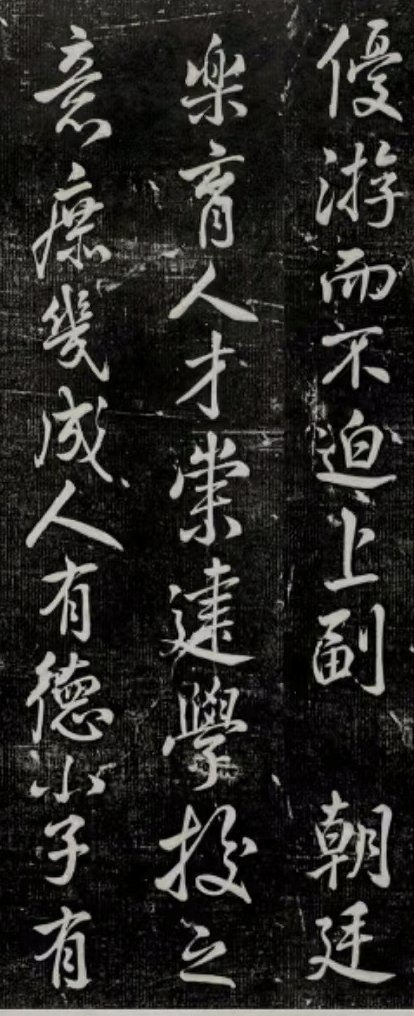 優游而不迫上副 朝廷
樂育人才崇建學校之
意庶幾成人有德小子有